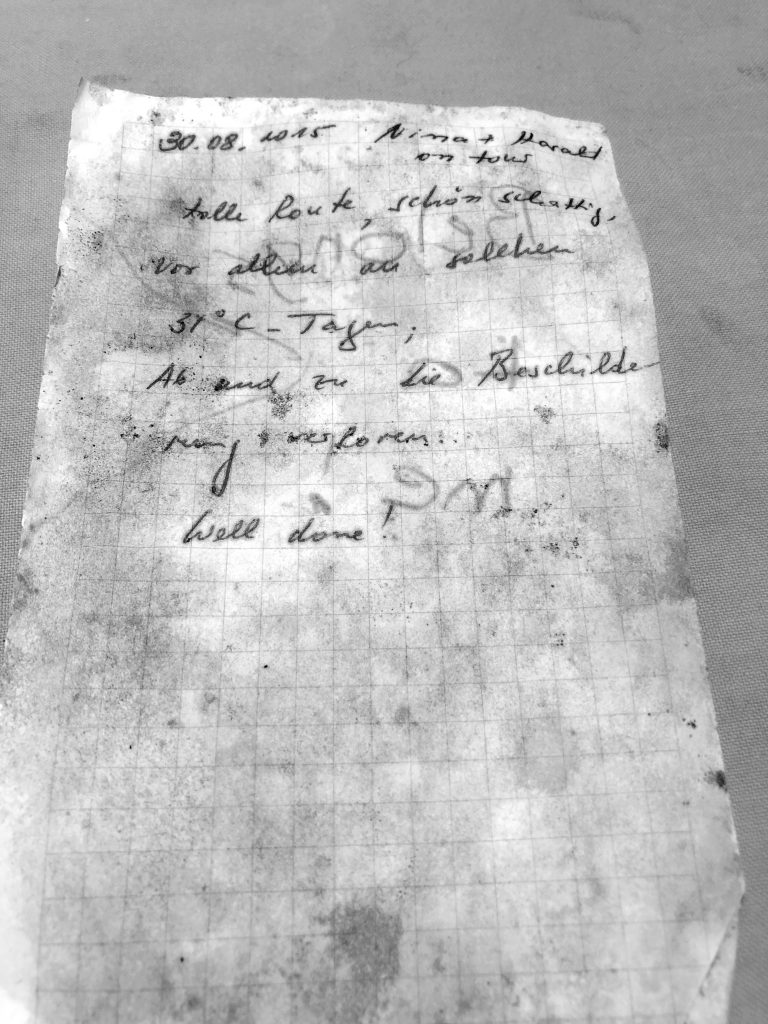 30.08.2015 Nina + Harald
on tour
tolle Route, schön schattig,
vor allem an solchen
31°C-Tagen;
Ab und zu die Beschilde
rung verloren..
Well done!
Belongs
to
me